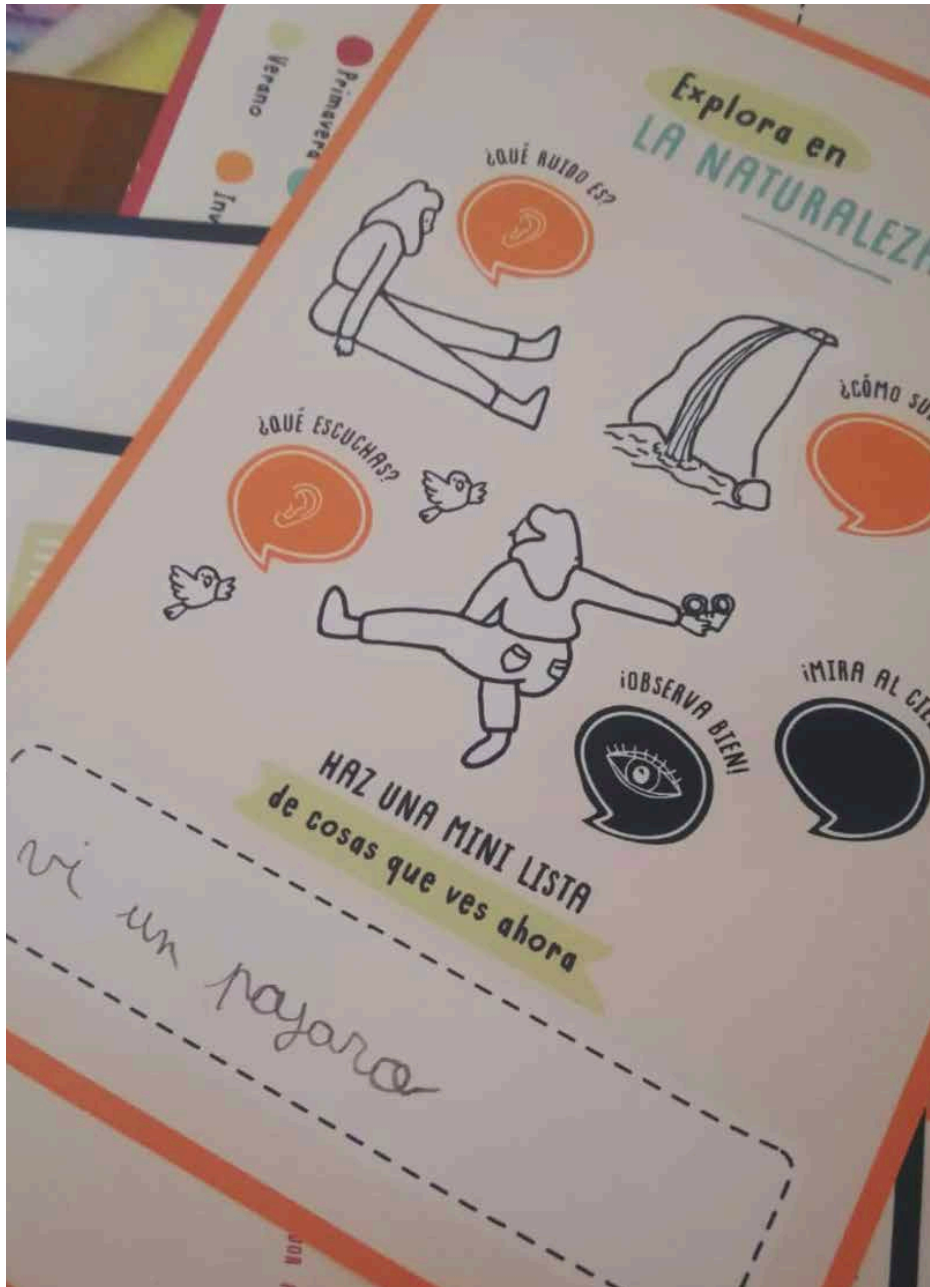 Verano
Primavera
Explora en
LA NATURALEZA
¿QUÉ RUIDO ES?
¿CÓMO
¿QUÉ ESCUCHAS?
¡OBSERVA BIEN!
¡MIRA AL
HAZ UNA MINI LISTA
de cosas que ves ahora
vi un pajaro